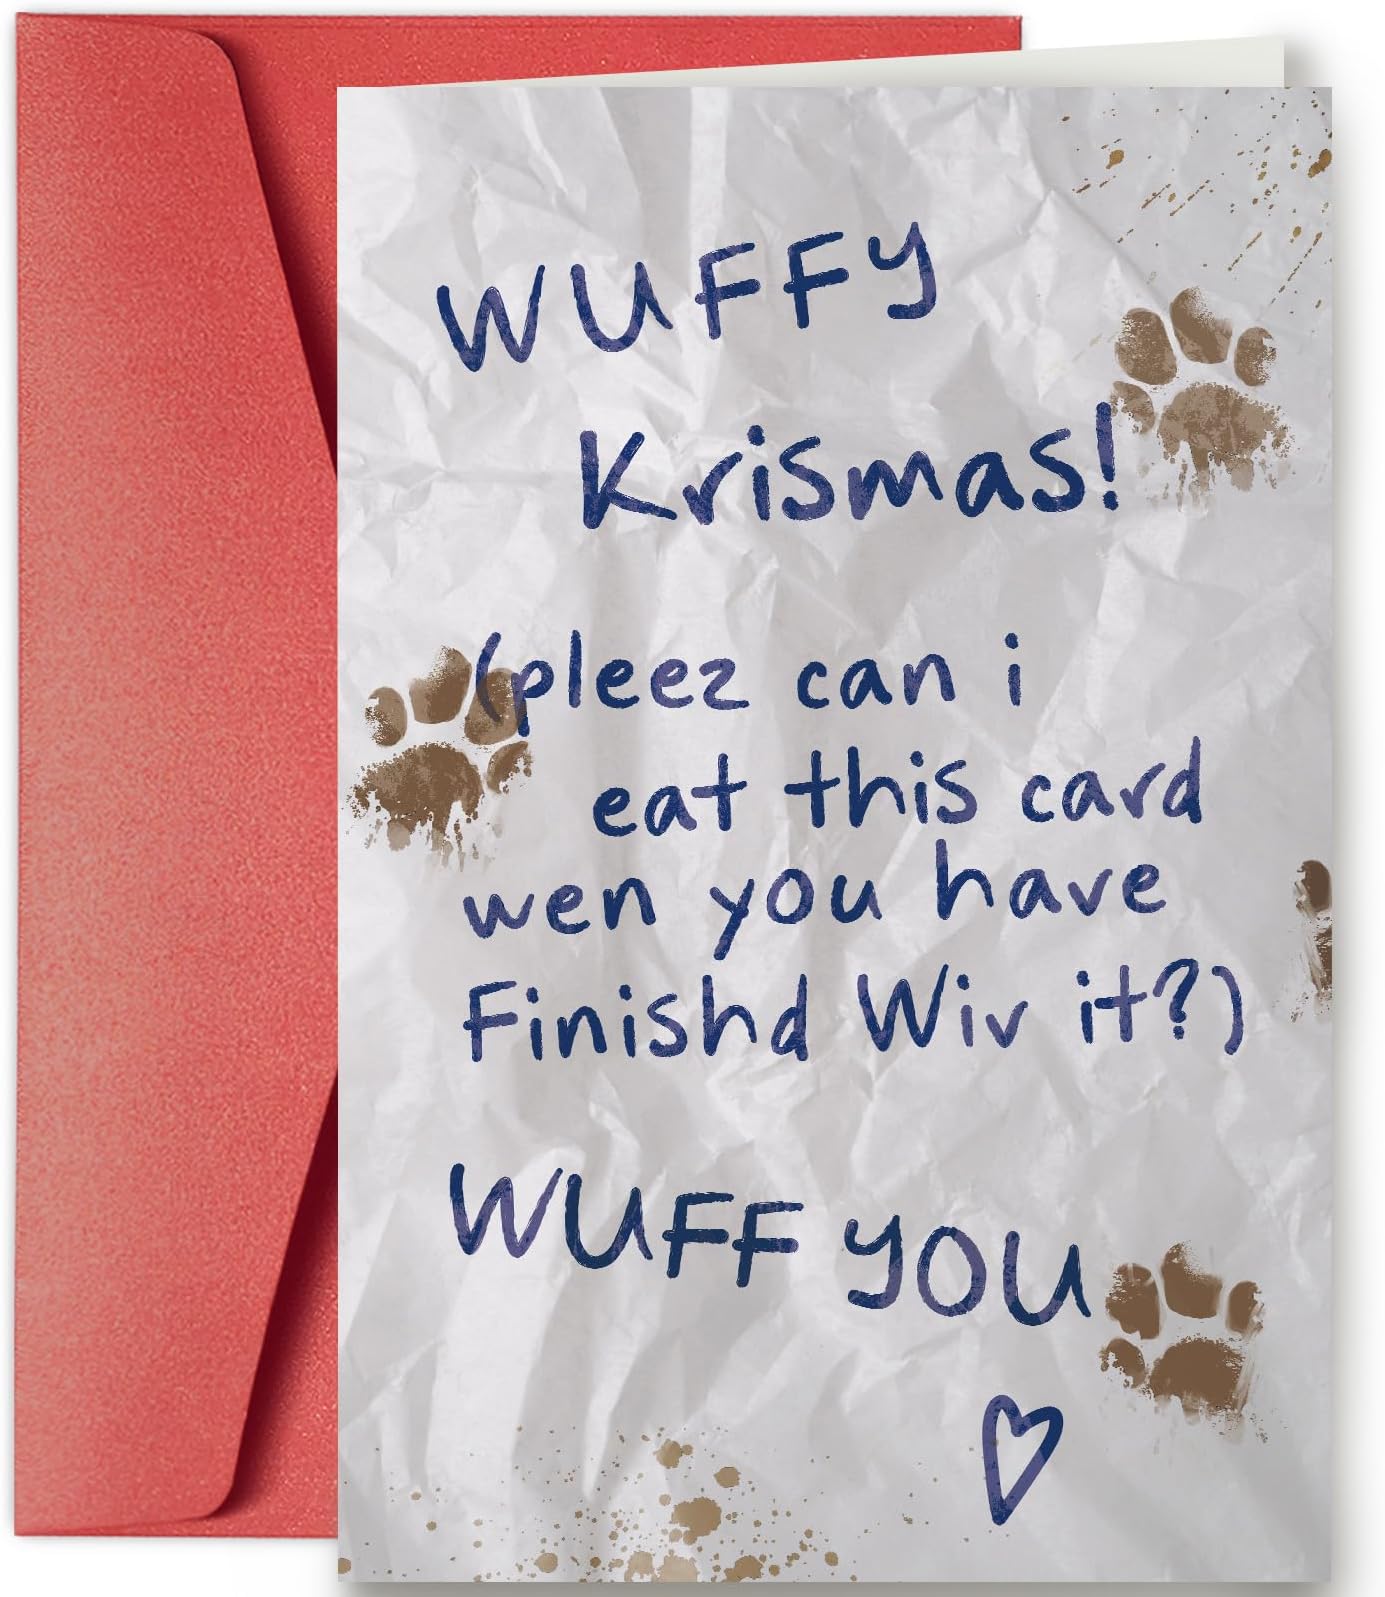 WUFFY
Krismas!
(pleez can i
eat this card
wen you have
Finishd Wiv it?)
WUFF YOU